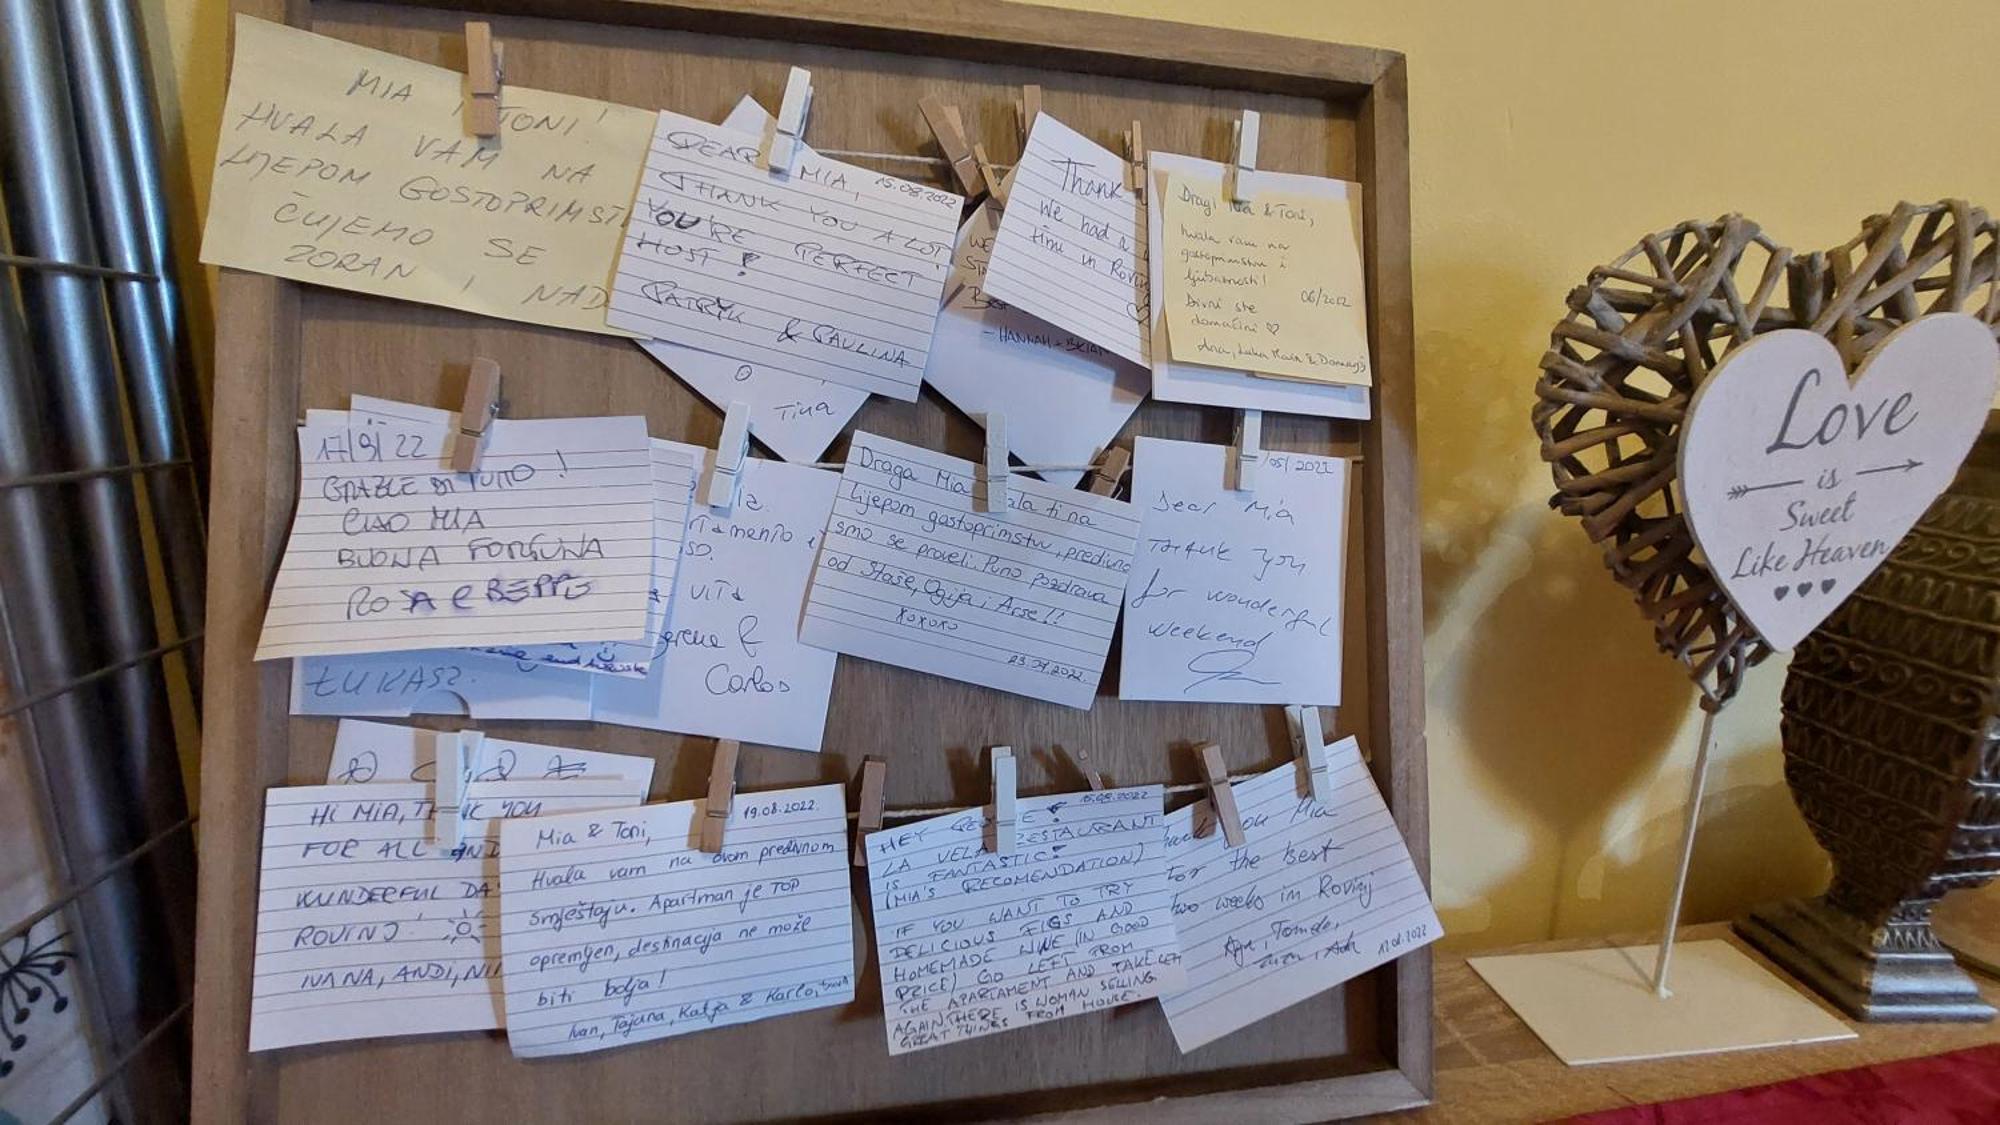 MIA I TONI!
HVALA VAM NA
LIJEPOM GOSTOPRIMST
ČUJEMO SE
ZORAN I NAD
DEAR MIA,
15.08.2022
THANK YOU A LOT!
YOU'RE PERFECT
HOST!
PATRYK & PAULINA
Tina
WE
Best
- HANNAH + BRIAN
Thank
We had a
time in Rovinj
♡
Dragi Mia & Toni,
hvala vam na
gostoprimstvu i
ljubaznosti!
06/2022
Divni ste
domaćini ♡
Ana, Luka
17/9/22
GRAZIE DI TUTTO!
CIAO MIA
BUONA FORTUNA
ROSA e BEPPE
ŁUKASZ.
VITA
Carlos
Draga Mia ala ti na
lijepom gostoprimstvu, predivno
smo se proveli. Puno pozdrava
od Staše, Ognja i Arse!!
xoxoxo
/05/2022
Dear Mia
THANK you
for wonderful
weekend
HI MIA, TH K YOU
FOR ALL AND
WUNDERFUL DA
ROVINJ!
IVANA, ANDI, NI
19.08.2022.
Mia & Toni,
Hvala vam na ovom predivnom
smještaju. Apartman je TOP
opremljen, destinacija ne može
biti bolja!
Ivan, Tajana, Katja & Karlo,
15.08.2022
HEY PEO E!
LA VELA RESTAURANT
IS FANTASTIC!
(MIA'S RECOMENDATION)
IF YOU WANT TO TRY
DELICIOUS FIGS AND
HOMEMADE WINE (IN GOOD
PRICE) GO LEFT FROM
THE APARTAMENT AND TAKE LEFT
AGAIN. THERE IS WOMAN SELLING
GREAT THINGS FROM HOUSE.
ou Mia
for the best
two weeks in Rovinj
Love
is
Sweet
Like Heaven
♥♥♥